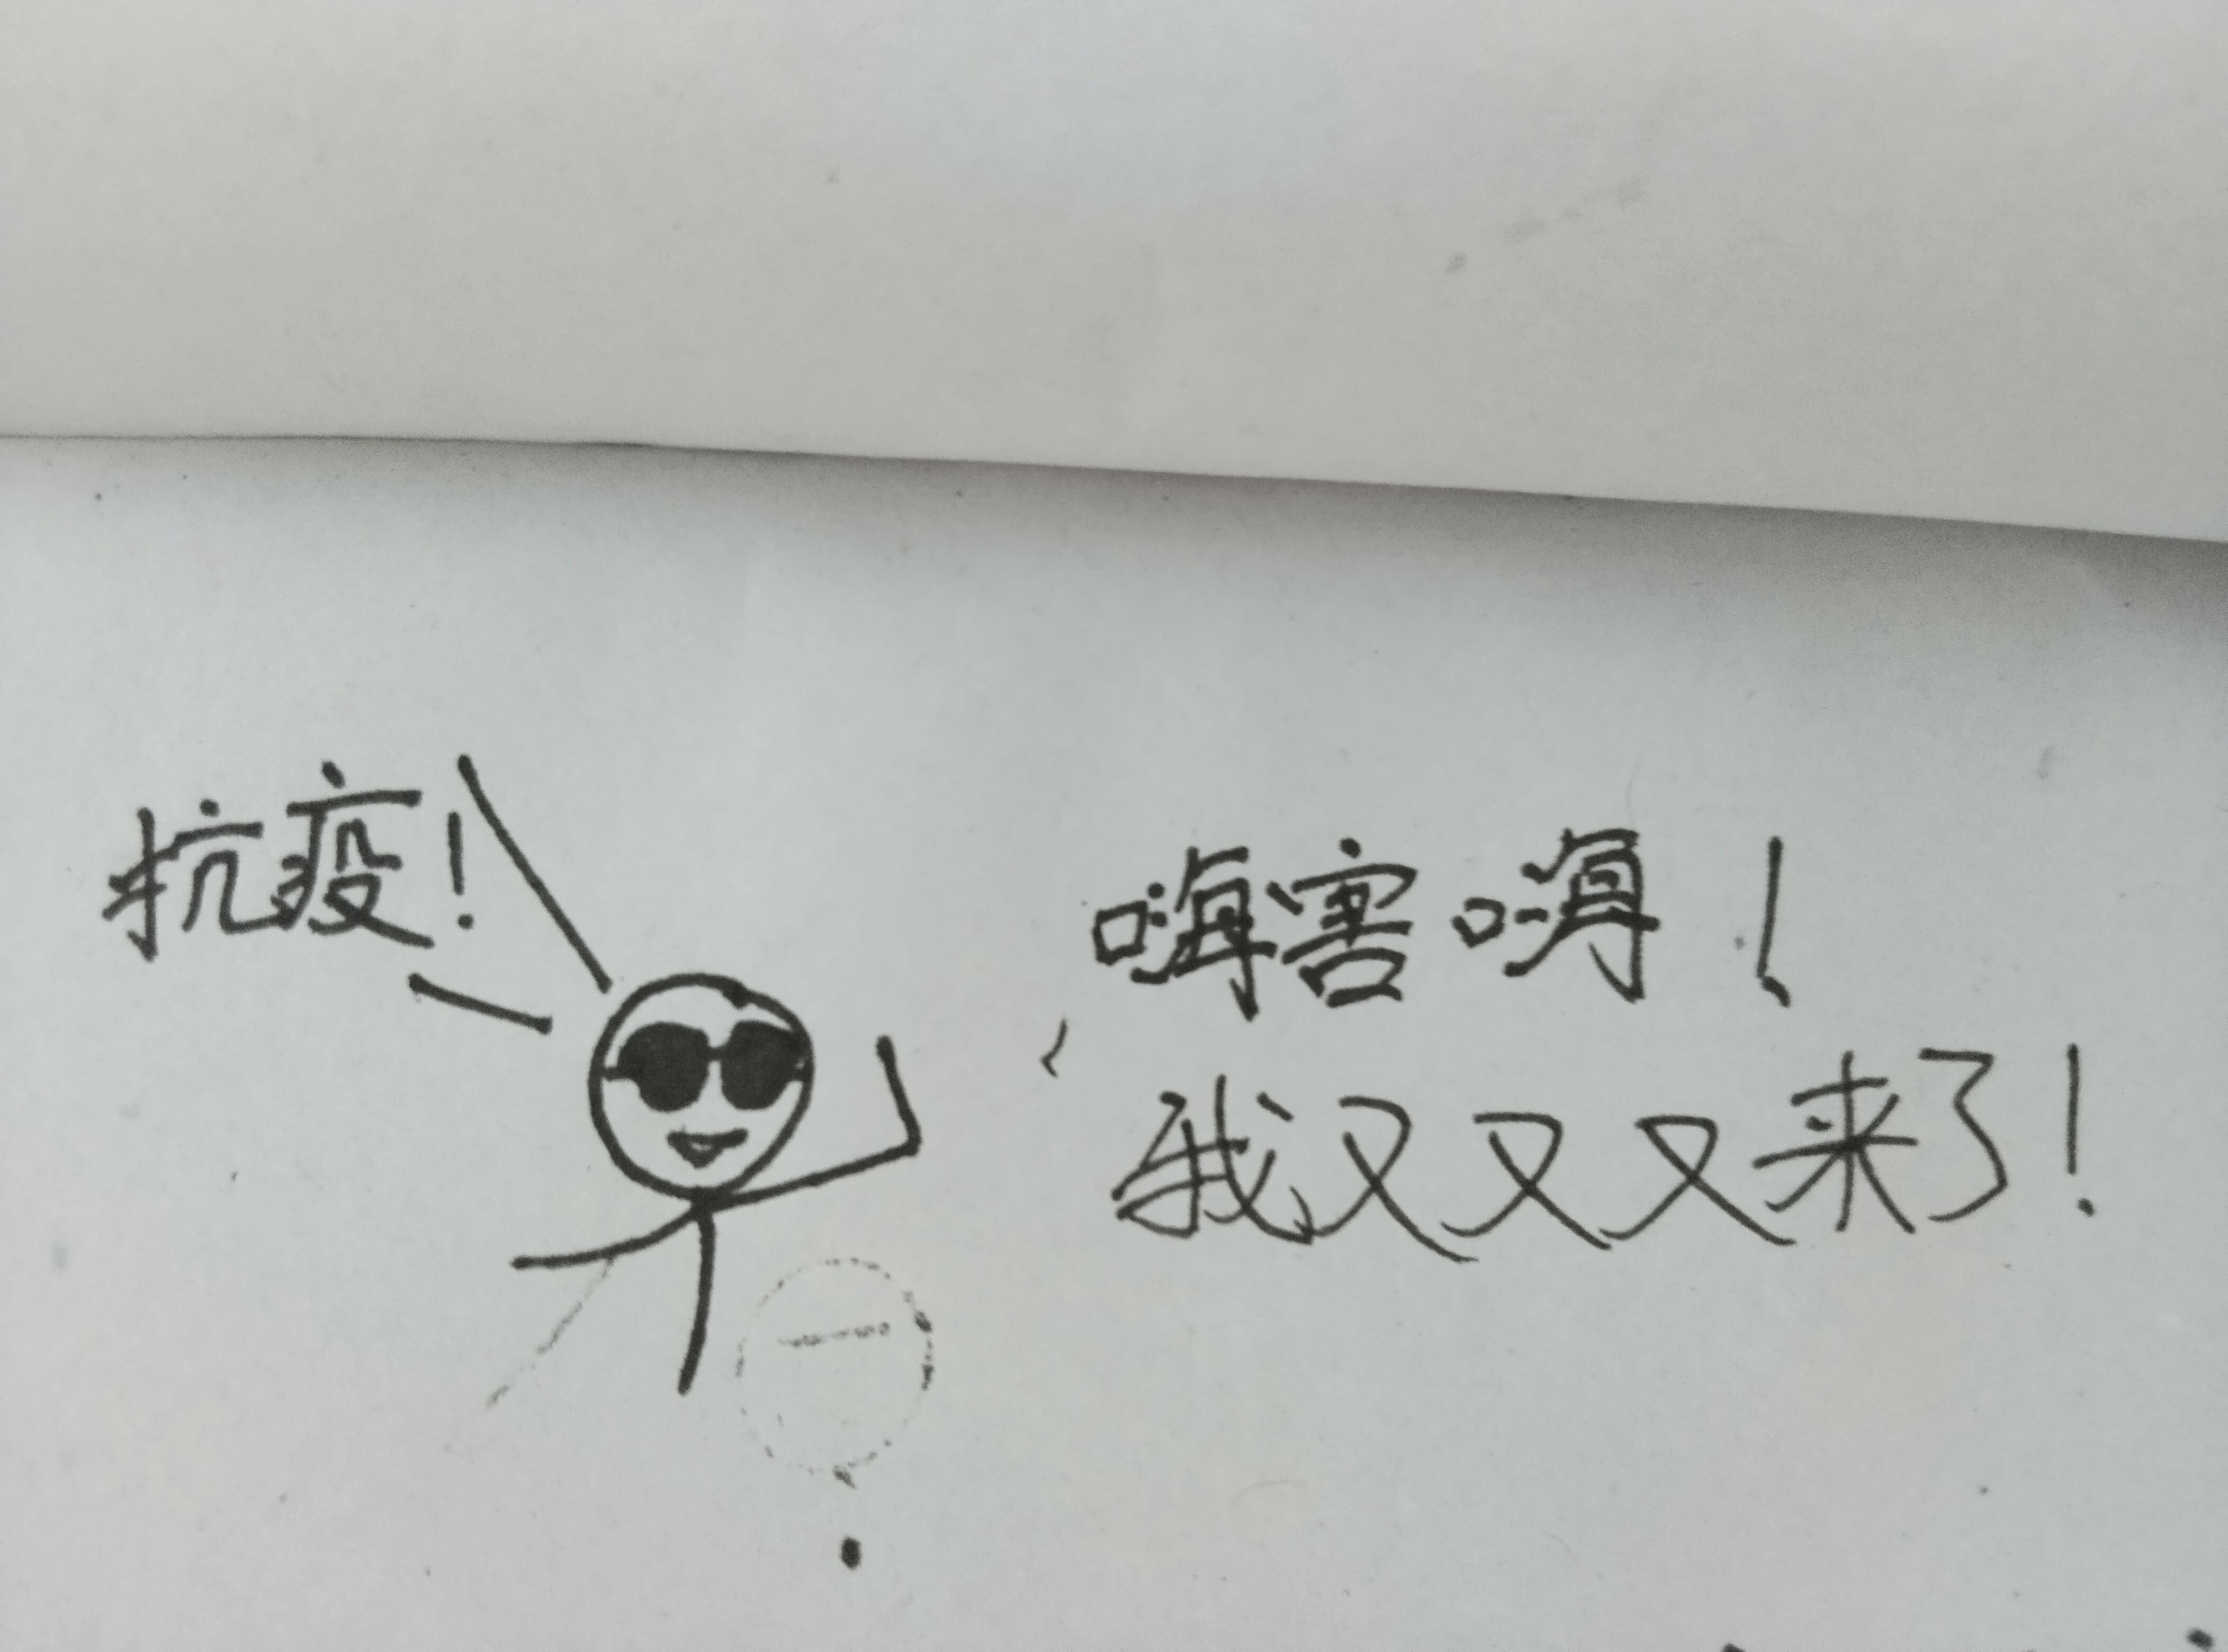 抗疫！
嗨害嗨！
我又又又来了！